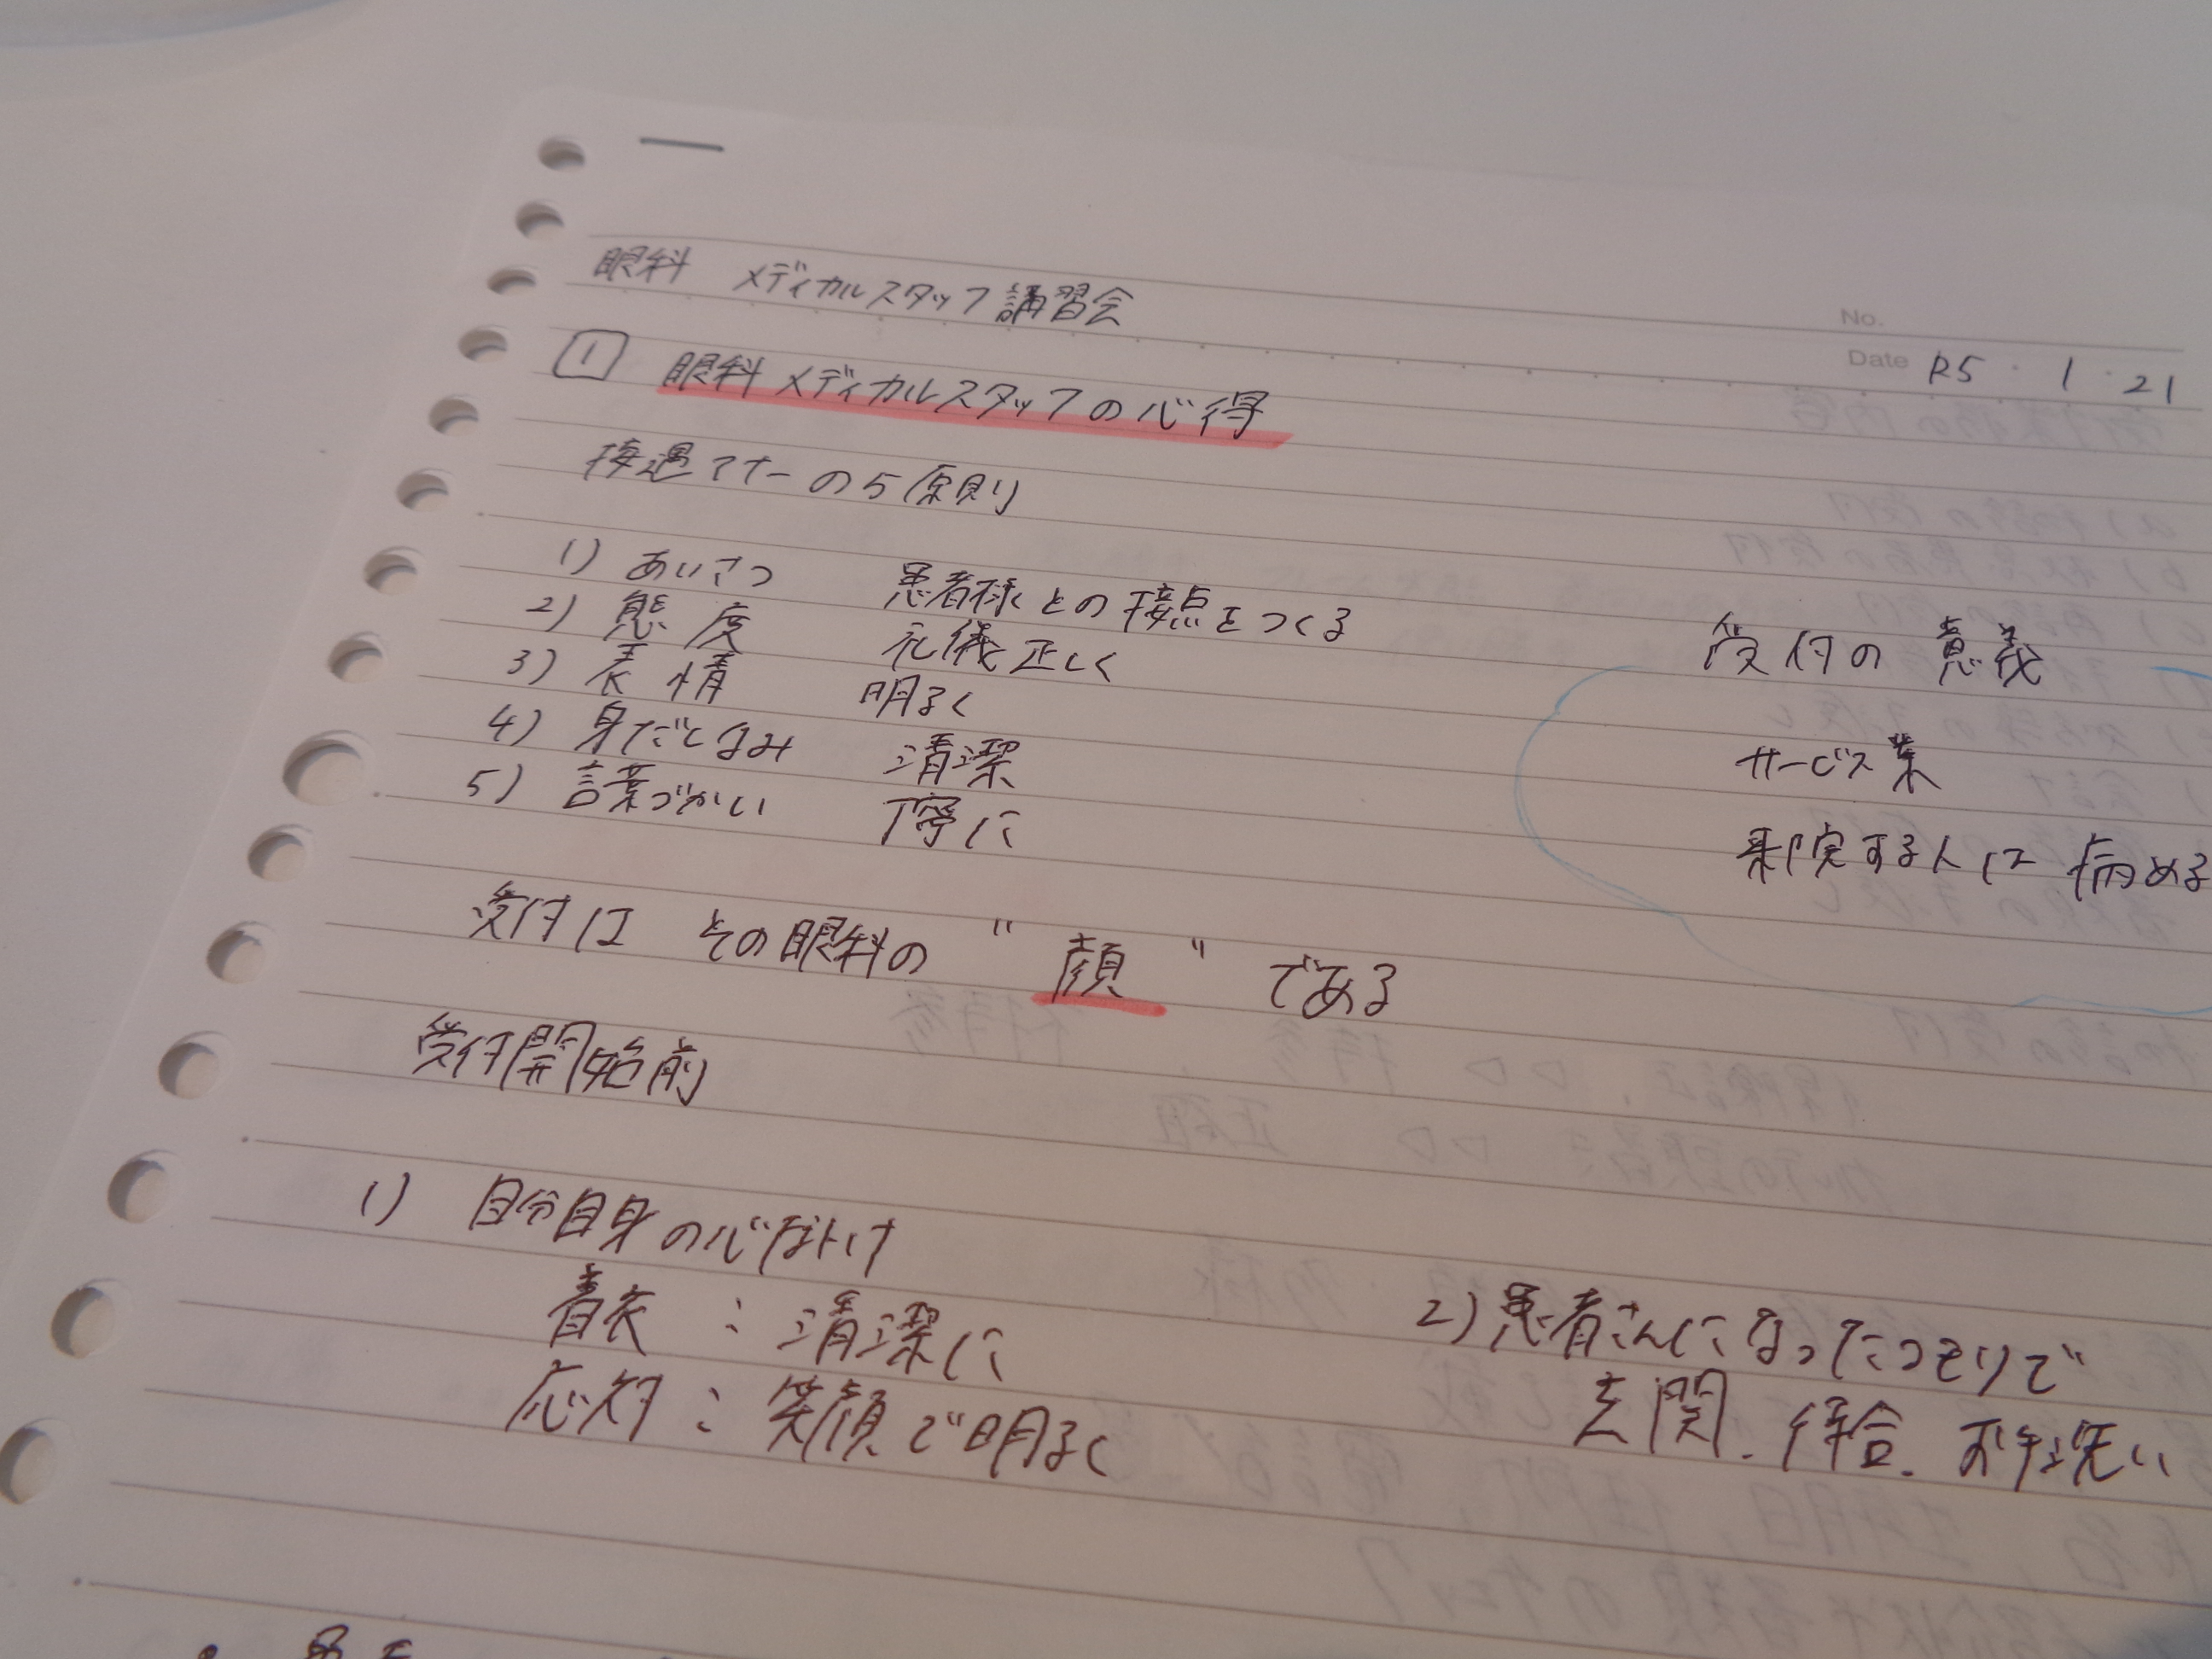 眼科 メディカルスタッフ講習会
No.
Date R5・1・21
1 眼科メディカルスタッフの心得
接遇マナーの5原則
1) あいさつ 患者様との接点をつくる
2) 態度 礼儀正しく
3) 表情 明るく
4) 身だしなみ 清潔
5) 言葉づかい 丁寧に
受付の意義
サービス業
来院する人は病める
受付は その眼科の "顔" である
受付開始前
1) 自分自身の心がけ
着衣：清潔に
応対：笑顔で明るく
2) 患者さんになったつもりで
玄関、待合、お手洗い